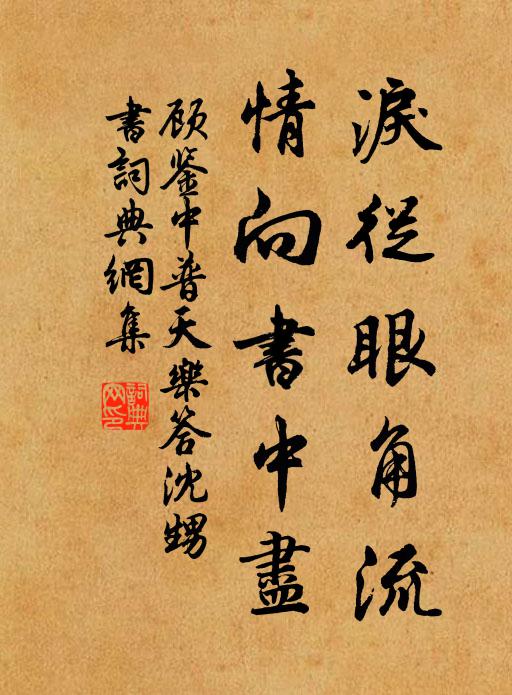 淚從眼角流
情向書中盡
顾鉴中普天樂答沈甥
書詞典網集
詞典
网印